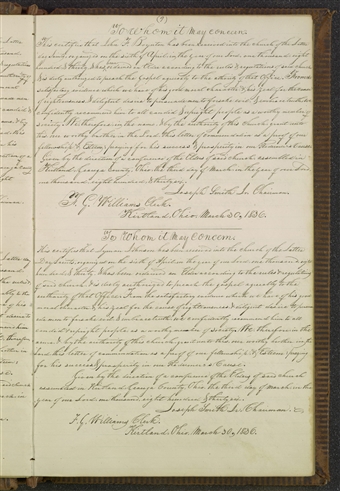 (3)
To whom it may concern
This certifies that John F. Boynton has been received into the church of the Latter
Day Saints, organized on the sixth of April, in the year of our Lord, one thousand, eight
hundred & thirty, & has been ordained an Elder according to the rules & regulations of said church
& is duly authorized to preach the gospel agreeably to the authority of that Office. From the
satisfactory evidence which we have of his good moral character, & his zeal for the cause
of righteousness, & diligent desire to persuade men to forsake evil & embrace truth, we
confidently recommend him to all candid & upright people as a worthy member of
society. We therefore in the name, & by the authority of this church grant unto
this our worthy brother in the Lord this letter of commendation as a proof of our
fellowship & esteem; praying for his success & prosperity in our Redeemer's Cause.
Given by the direction of a conference of the Elders of said church assembled in
Kirtland, Geauga County, Ohio, the third day of March in the year of our Lord
one thousand eight hundred & thirty six.
Joseph Smith Jr. Chairman
F. G. Williams Clerk.
Kirtland, Ohio, March 30, 1836.
To whom it may concern
This certifies that Lyman Johnson has been received into the church of the Latter
Day Saints, organized on the sixth of April in the year of our Lord, one thousand eight
hundred & thirty & has been ordained an Elder according to the rules & regulations
of said church & is duly authorized to preach the gospel agreeably to the
authority of that Office. From the satisfactory evidence which we have of his good
moral character, & his zeal for the cause of righteousness, & diligent desire to persuade
men to forsake evil & embrace truth, we confidently recommend him to all
candid & upright people as a worthy member of society. We therefore in the
name, & by the authority of this church grant unto this our worthy brother in the
Lord this letter of commendation as a proof of our fellowship & esteem; praying
for his success & prosperity in our Redeemer's Cause.
Given by the direction of a conference of the Elders of said church
assembled in Kirtland, Geauga County, Ohio, the third day of March in the
year of our Lord one thousand eight hundred & thirty six.
Joseph Smith Jr. Chairman.
F. G. Williams Clerk.
Kirtland, Ohio, March 30, 1836.